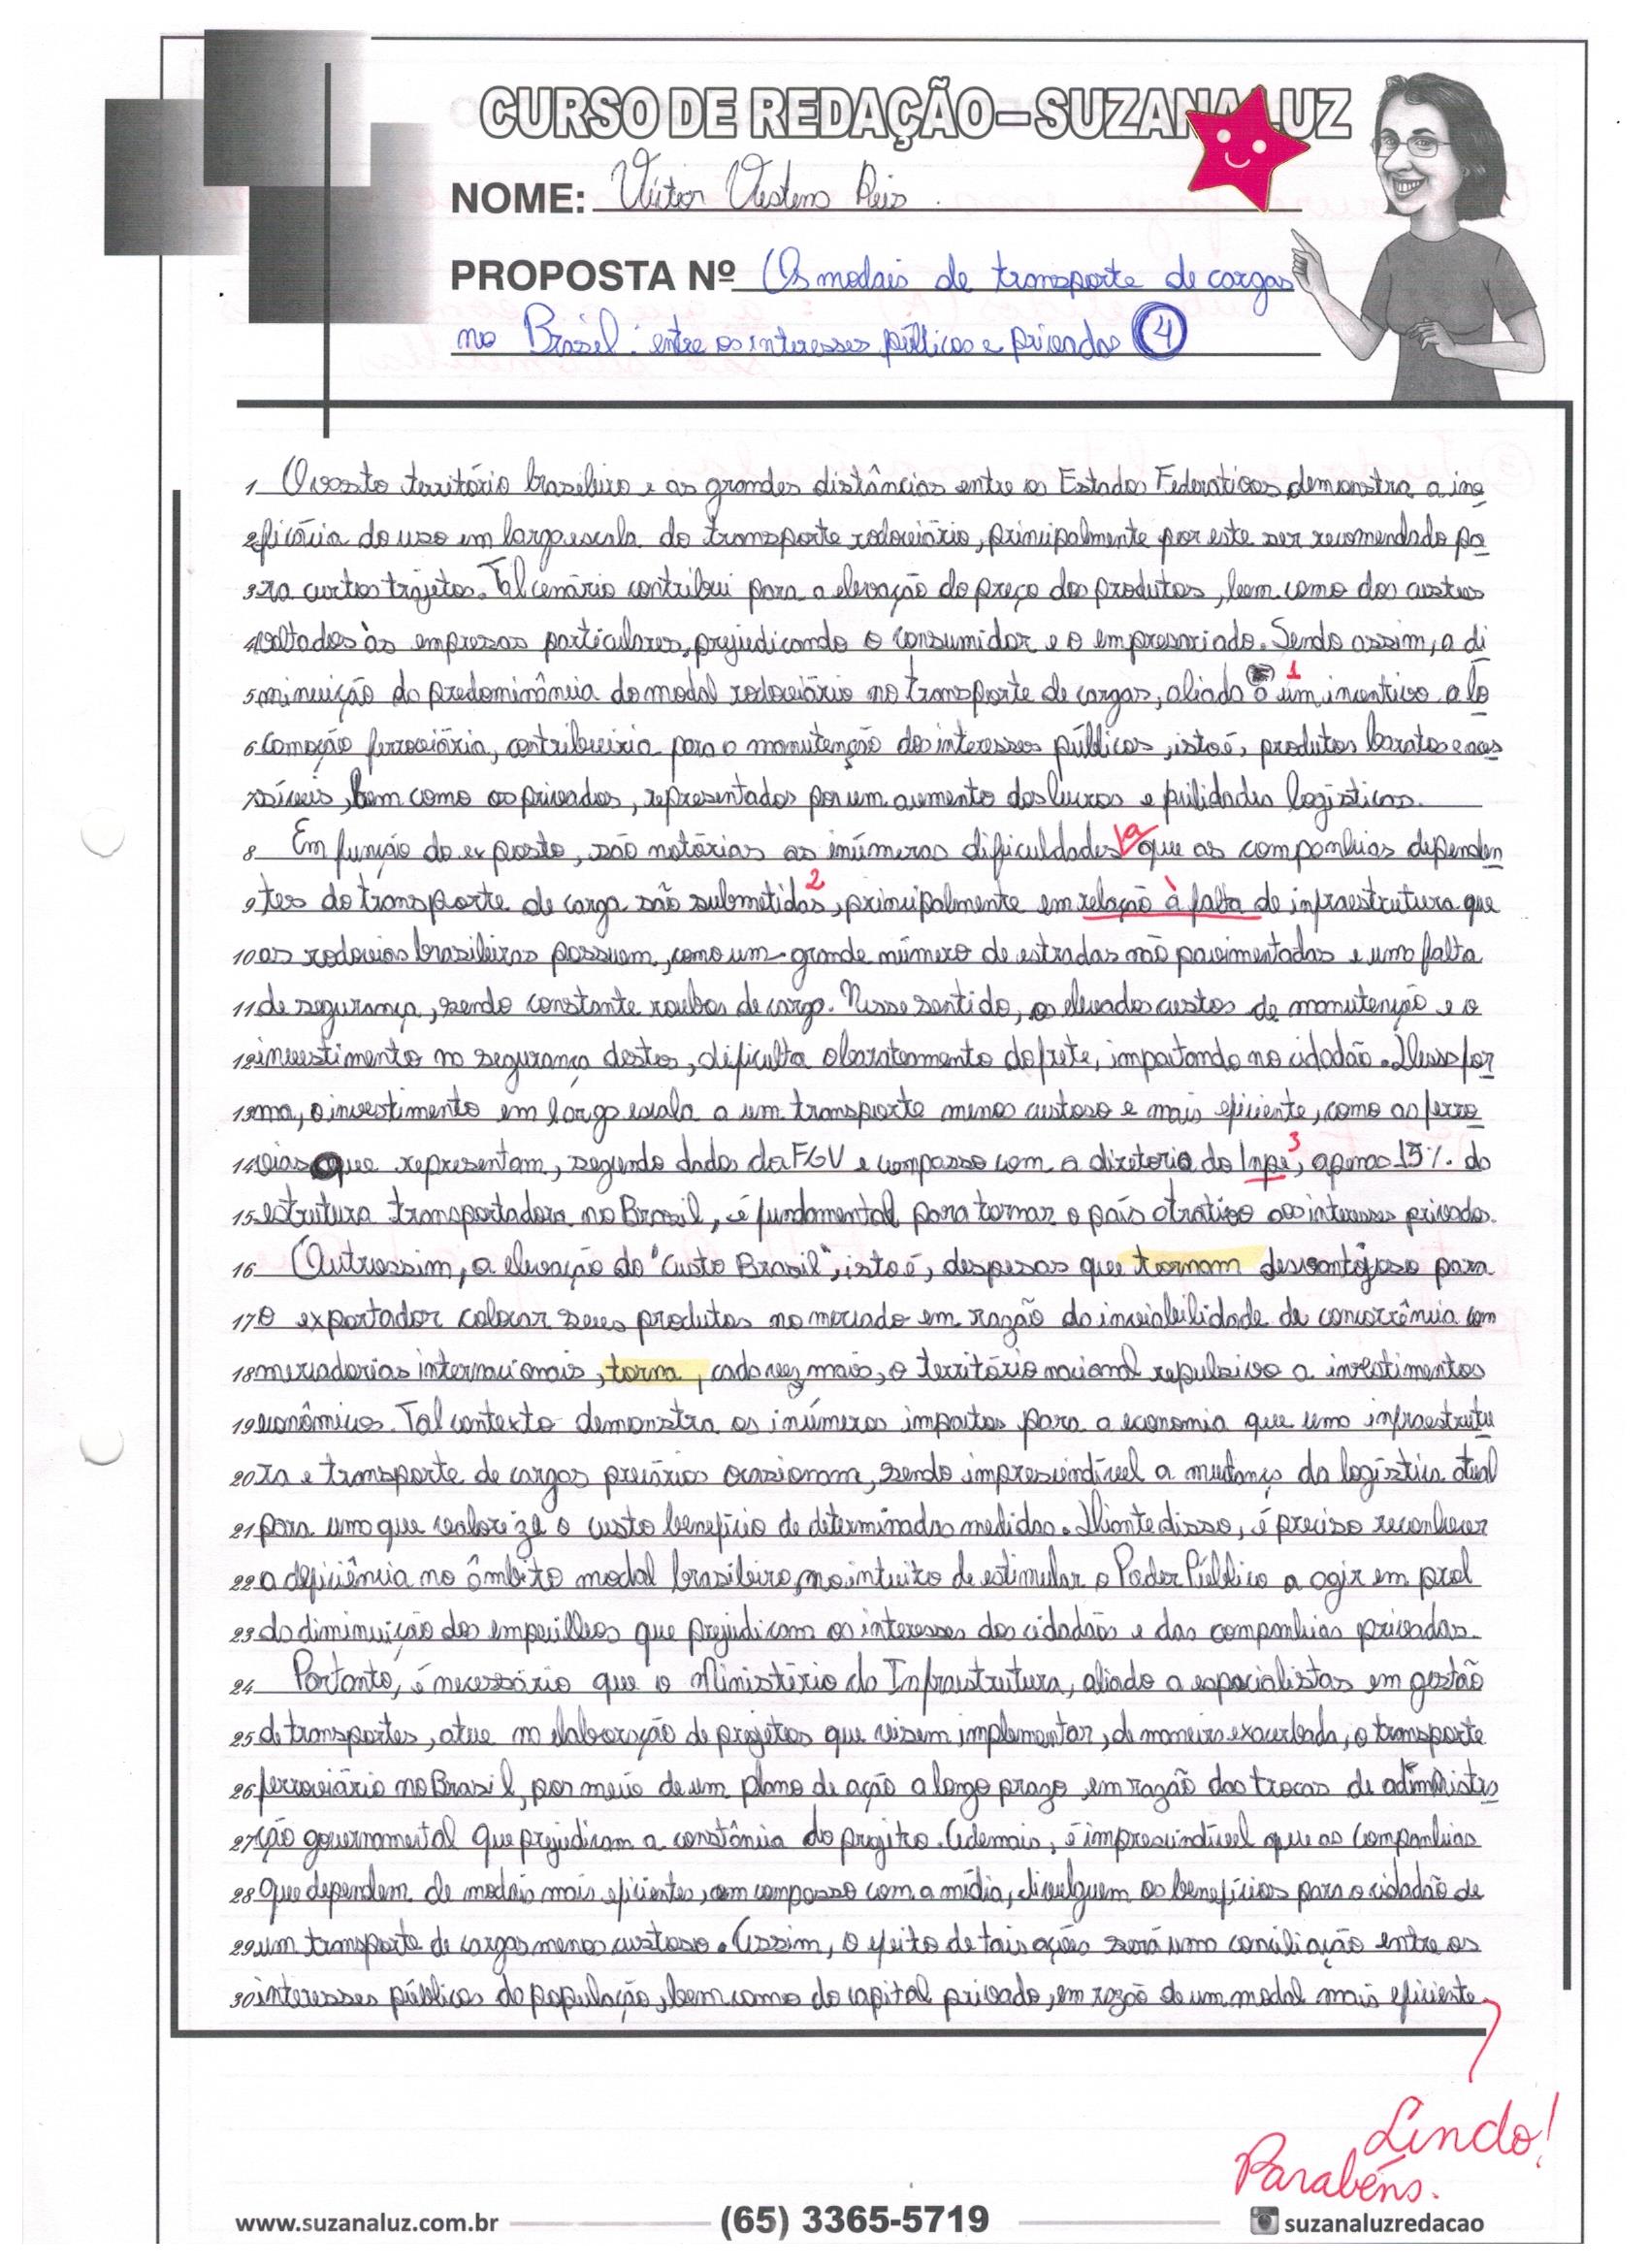 CURSO DE REDAÇÃO - SUZANA LUZ
NOME: Victor Reis
PROPOSTA Nº Os modais de transporte de cargas
no Brasil: entre os interesses públicos e privados 4
1 O vasto território brasileiro e as grandes distâncias entre os Estados Federativos demonstra a ine
2 ficácia do uso em larga escala do transporte rodoviário, principalmente por este ser recomendado pa
3 ra curtos trajetos. Tal cenário contribui para a elevação do preço dos produtos, bem como dos custos
4 voltados às empresas particulares, prejudicando o consumidor e o empresariado. Sendo assim, a di
5 minuição da predominância do modal rodoviário no transporte de cargas, aliada a um incentivo a lo 1
6 comoção ferroviária, contribuiria para a manutenção dos interesses públicos, isto é, produtos baratos e aces
7 síveis, bem como os privados, representados por um aumento dos lucros e logísticas.
8 Em função do exposto, são notórias as inúmeras dificuldades a que as companhias dependen
9 tes do transporte de carga são submetidas, principalmente em relação à falta de infraestrutura que 2
10 as rodovias brasileiras possuem, como um grande número de estradas não pavimentadas e uma falta
11 de segurança, sendo constante roubos de carga. Nesse sentido, os elevados custos de manutenção e o
12 investimento na segurança destes, dificulta o barateamento do frete, impactando no cidadão. Dessa for
13 ma, o investimento em larga escala a um transporte menos custoso e mais eficiente, como as ferro
14 vias que representam, segundo dados da FGV e compasso com a diretoria do Inpe, apenas 15% da 3
15 estrutura transportadora no Brasil, é fundamental para tornar o país atrativo aos interesses privados.
16 Outrossim, a elevação do "Custo Brasil", isto é, despesas que tornam desvantajoso para
17 o exportador colocar seus produtos no mercado em razão da inviabilidade de concorrência com
18 mercadorias internacionais, torna, cada vez mais, o território nacional repulsivo a investimentos
19 econômicos. Tal contexto demonstra os inúmeros impactos para a economia que uma infraestrutu
20 ra e transporte de cargas precários ocasionam, sendo imprescindível a mudança da logística atual
21 para uma que valorize o custo benefício de determinadas medidas. Diante disso, é preciso reconhecer
22 a deficiência no âmbito modal brasileiro, no intuito de estimular o Poder Público a agir em prol
23 da diminuição dos empecilhos que prejudicam os interesses dos cidadãos e das companhias privadas.
24 Portanto, é necessário que o Ministério da Infraestrutura, aliado a especialistas em gestão
25 de transportes, atue na elaboração de projetos que visem implementar, de maneira exacerbada, o transporte
26 ferroviário no Brasil, por meio de um plano de ação a longo prazo, em razão das trocas de administra
27 ção governamental que prejudicam a constância do projeto. Ademais, é imprescindível que as companhias
28 que dependem de modais mais eficientes, em compasso com a mídia, divulguem os benefícios para o cidadão de
29 um transporte de cargas menos custoso. Assim, o efeito de tais ações será uma conciliação entre os
30 interesses públicos da população, bem como do capital privado, em razão de um modal mais eficiente.
Lindo!
Parabéns.
www.suzanaluz.com.br (65) 3365-5719 suzanaluzredacao